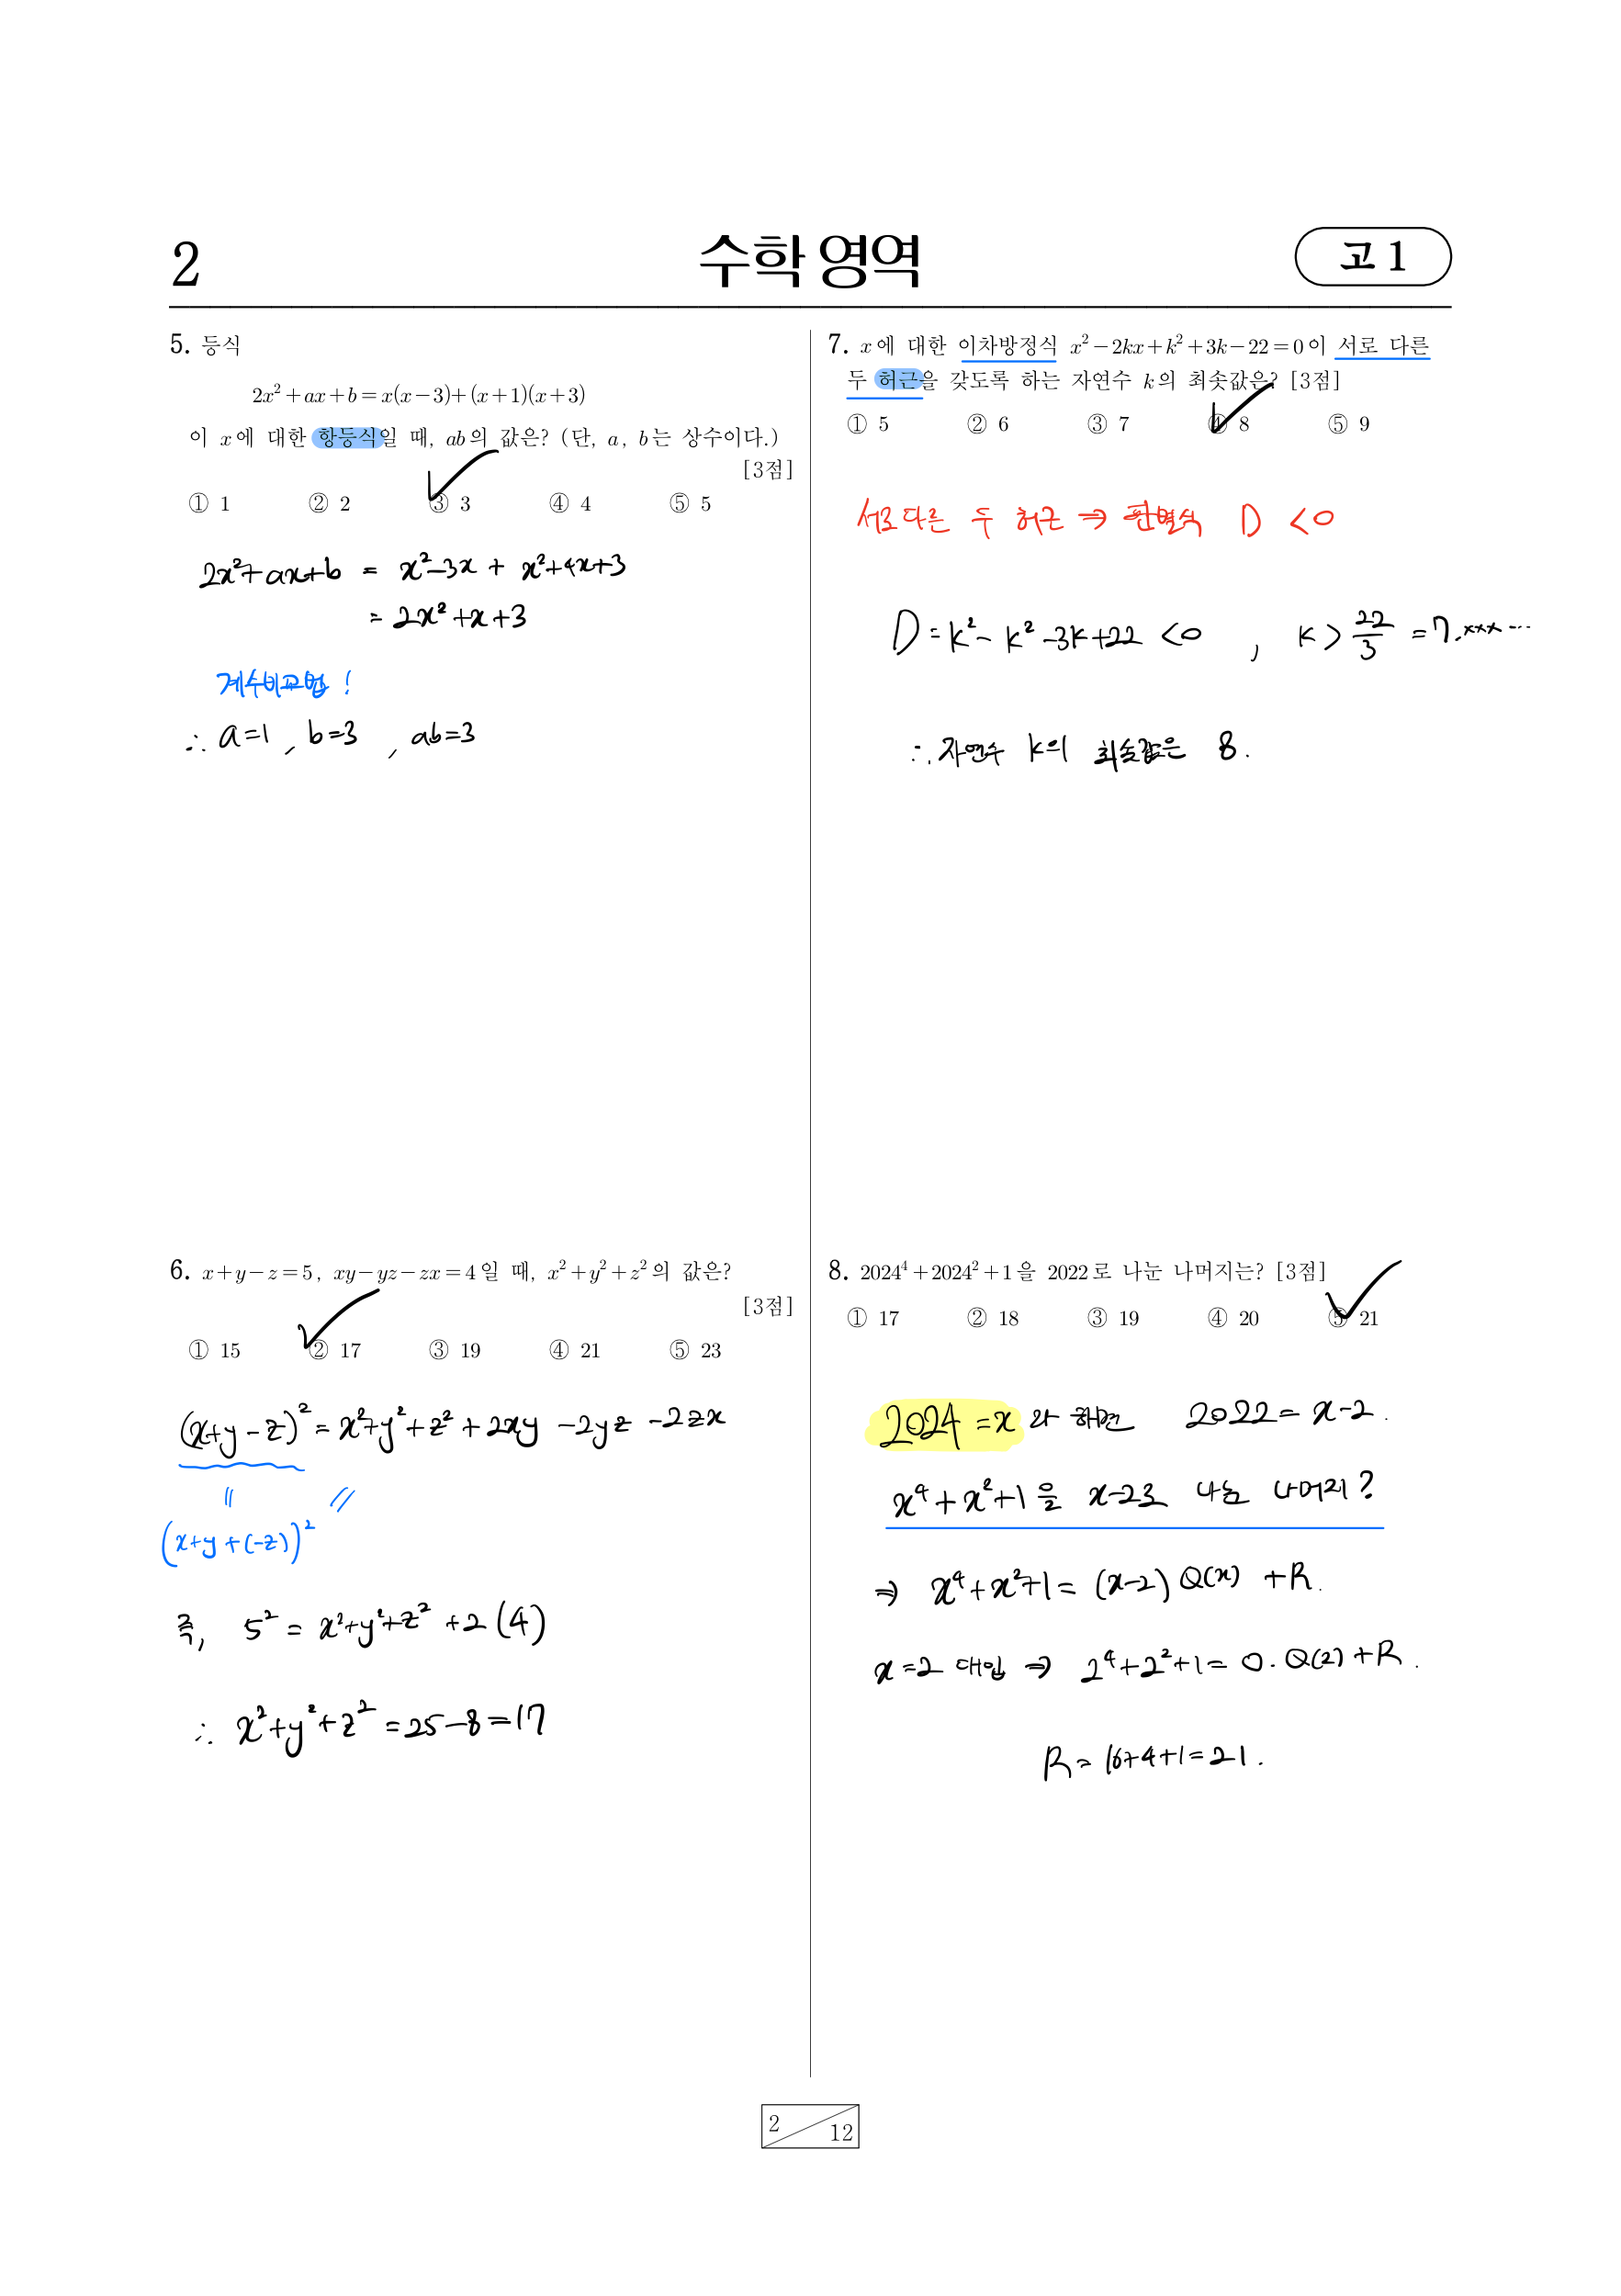 2
수학 영역
고 1
5. 등식
2x² + ax + b = x(x − 3) + (x + 1)(x + 3)
이 x에 대한 항등식일 때, ab의 값은? (단, a, b는 상수이다.)
[3점]
① 1 ② 2 ③ 3 ④ 4 ⑤ 5
2x²+ax+b = x²−3x + x²+4x+3
= 2x²+x+3
계수비교법!
∴ a=1, b=3, ab=3
6. x + y − z = 5, xy − yz − zx = 4일 때, x² + y² + z²의 값은?
[3점]
① 15 ② 17 ③ 19 ④ 21 ⑤ 23
(x+y−z)² = x²+y²+z²+2xy −2yz −2zx
(x+y+(−z))²
즉, 5² = x²+y²+z² +2(4)
∴ x²+y²+z² = 25−8=17
7. x에 대한 이차방정식 x² − 2kx + k² + 3k − 22 = 0이 서로 다른
두 허근을 갖도록 하는 자연수 k의 최솟값은? [3점]
① 5 ② 6 ③ 7 ④ 8 ⑤ 9
서로다른 두 허근 ⇒ 판별식 D <0
D = k²− k² −3k+22 <0 , k > 22/3 = 7.×××⋯
∴ 자연수 k의 최솟값은 8.
8. 2024⁴ + 2024² + 1을 2022로 나눈 나머지는? [3점]
① 17 ② 18 ③ 19 ④ 20 ⑤ 21
2024 = x 라 하면 2022 = x−2.
x⁴+x²+1을 x−2로 나눈 나머지?
⇒ x⁴+x²+1 = (x−2)Q(x) +R.
x=2 대입 ⇒ 2⁴+2²+1 = 0·Q(2)+R.
R = 16+4+1=21.
2 12